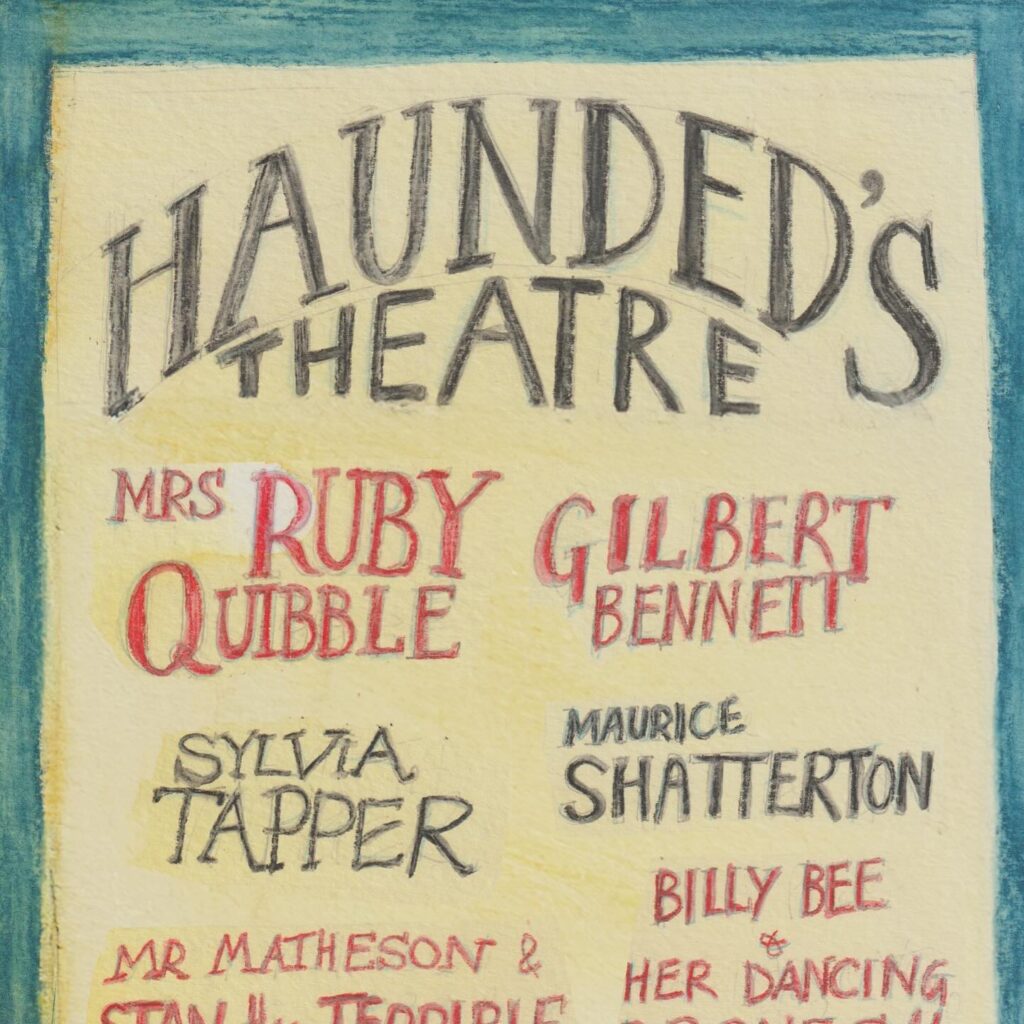 HAUNDED'S
THEATRE
MRS RUBY
QUIBBLE
GILBERT
BENNETT
SYLVIA
TAPPER
MAURICE
SHATTERTON
MR MATHESON &
STAN THE TERRIBLE
BILLY BEE
&
HER DANCING